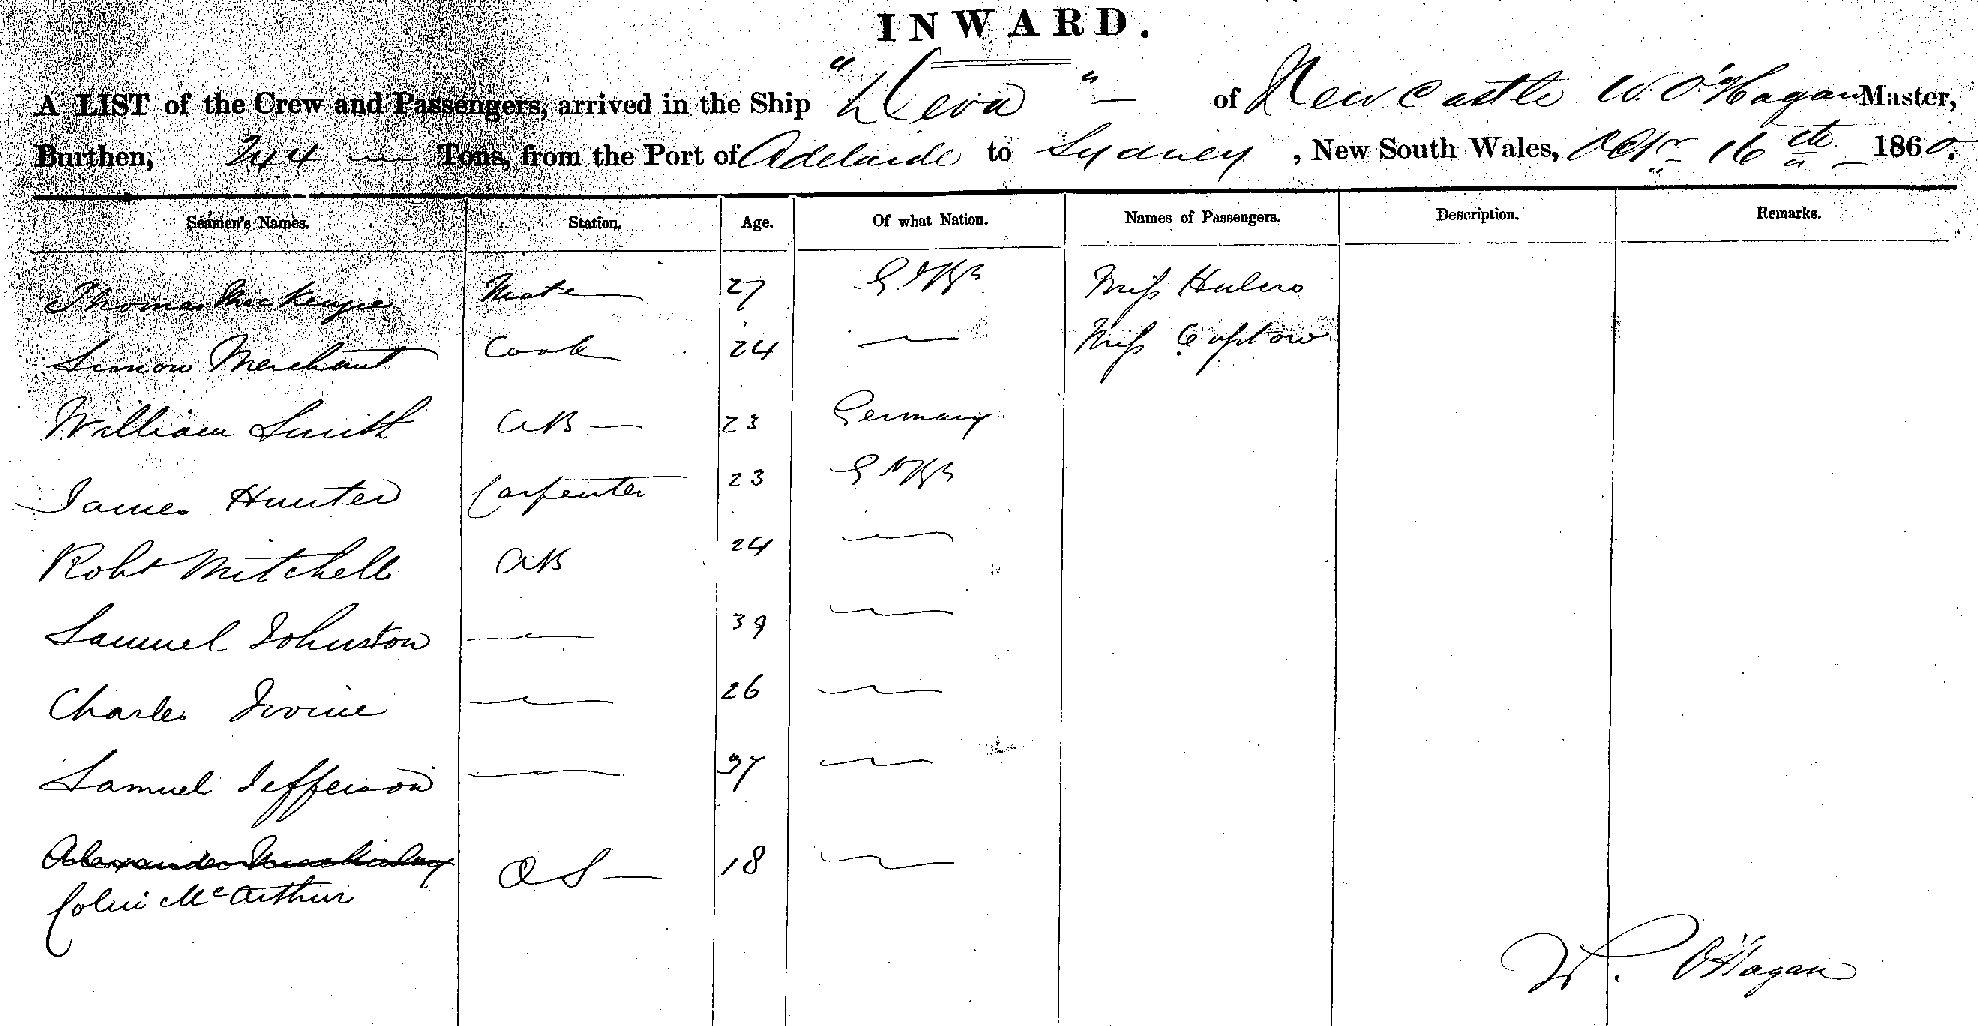 INWARD.
A LIST of the Crew and Passengers, arrived in the Ship "Deva" — of New Castle W. O'Hagan Master,
Burthen, 244 — Tons, from the Port of Adelaide to Sydney, New South Wales, Octr 16th 1860.
Seamen's Names. Station. Age. Of what Nation. Names of Passengers. Description. Remarks.
Thomas Mackenzie Mate — 27 Miss
Simon Merchant Cook 24 — Miss
William Smith AB — 23 Germany
James Hunter Carpenter 23
Robt Mitchell AB 24 —
Samuel Johnston — 39 —
Charles Irvine — 26 —
Samuel Jefferson — 37 —
Alexander OS — 18 —
Colin McArthur
W. O'Hagan